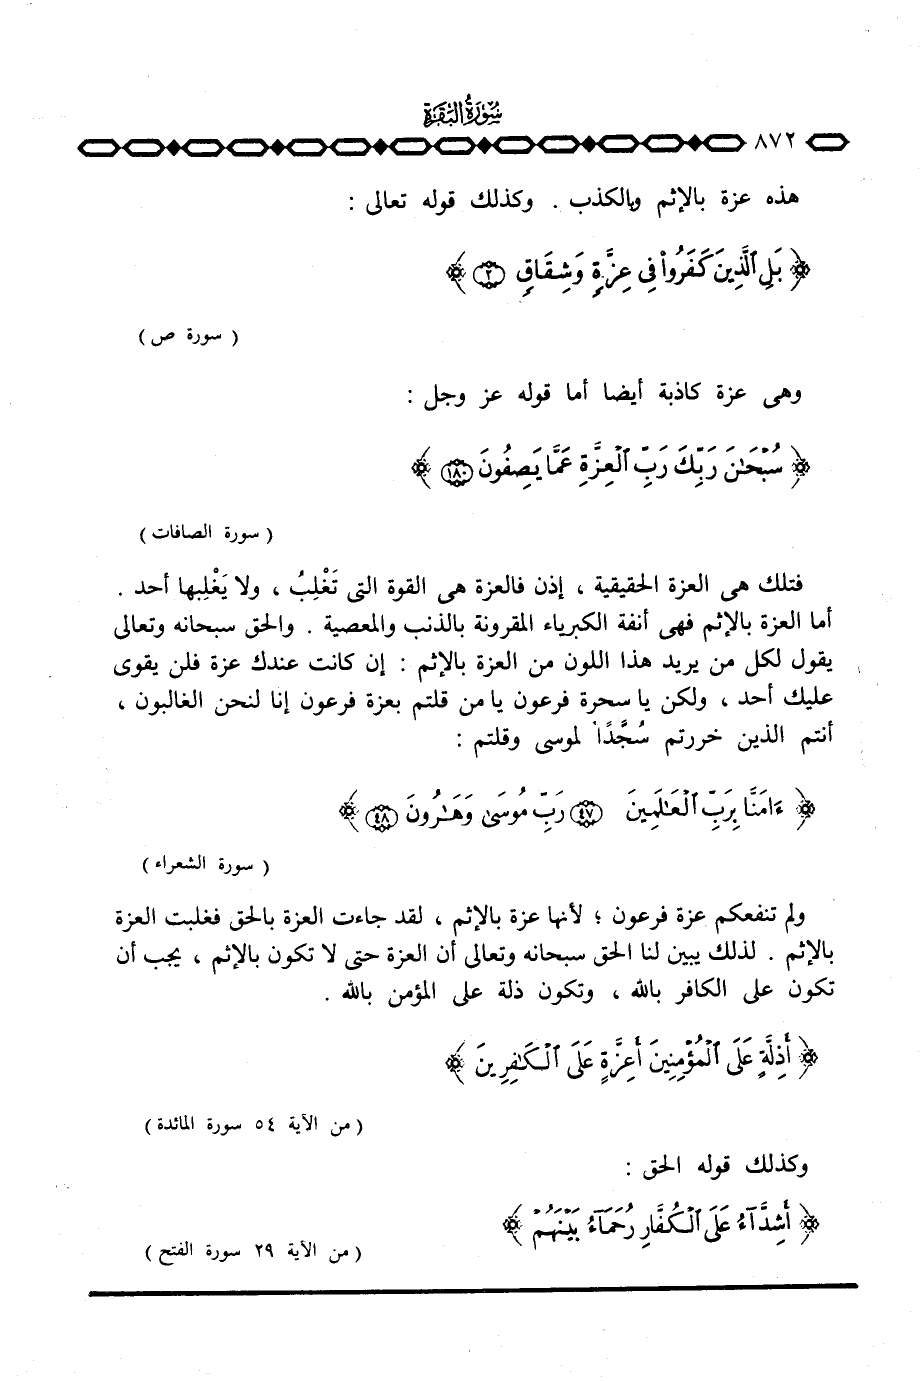 سورة البقرة
٨٧٢
هذه عزة بالإثم وبالكذب . وكذلك قوله تعالى :
﴿ بَلِ ٱلَّذِينَ كَفَرُوا۟ فِى عِزَّةٍ وَشِقَاقٍ ﴿٢﴾ ﴾
( سورة ص )
وهى عزة كاذبة أيضا أما قوله عز وجل :
﴿ سُبْحَـٰنَ رَبِّكَ رَبِّ ٱلْعِزَّةِ عَمَّا يَصِفُونَ ﴿١٨٠﴾ ﴾
( سورة الصافات )
فتلك هى العزة الحقيقية ، إذن فالعزة هى القوة التى تَغْلِبُ ، ولا يَغْلِبها أحد .
أما العزة بالإثم فهى أنفة الكبرياء المقرونة بالذنب والمعصية . والحق سبحانه وتعالى
يقول لكل من يريد هذا اللون من العزة بالإثم : إن كانت عندك عزة فلن يقوى
عليك أحد ، ولكن يا سحرة فرعون يا من قلتم بعزة فرعون إنا لنحن الغالبون ،
أنتم الذين خررتم سُجَّدًا لموسى وقلتم :
﴿ ءَامَنَّا بِرَبِّ ٱلْعَـٰلَمِينَ ﴿٤٧﴾ رَبِّ مُوسَىٰ وَهَـٰرُونَ ﴿٤٨﴾ ﴾
( سورة الشعراء )
ولم تنفعكم عزة فرعون ؛ لأنها عزة بالإثم ، لقد جاءت العزة بالحق فغلبت العزة
بالإثم . لذلك يبين لنا الحق سبحانه وتعالى أن العزة حتى لا تكون بالإثم ، يجب أن
تكون على الكافر بالله ، وتكون ذلة على المؤمن بالله .
﴿ أَذِلَّةٍ عَلَى ٱلْمُؤْمِنِينَ أَعِزَّةٍ عَلَى ٱلْكَـٰفِرِينَ ﴾
( من الآية ٥٤ سورة المائدة )
وكذلك قوله الحق :
﴿ أَشِدَّآءُ عَلَى ٱلْكُفَّارِ رُحَمَآءُ بَيْنَهُمْ ﴾
( من الآية ٢٩ سورة الفتح )